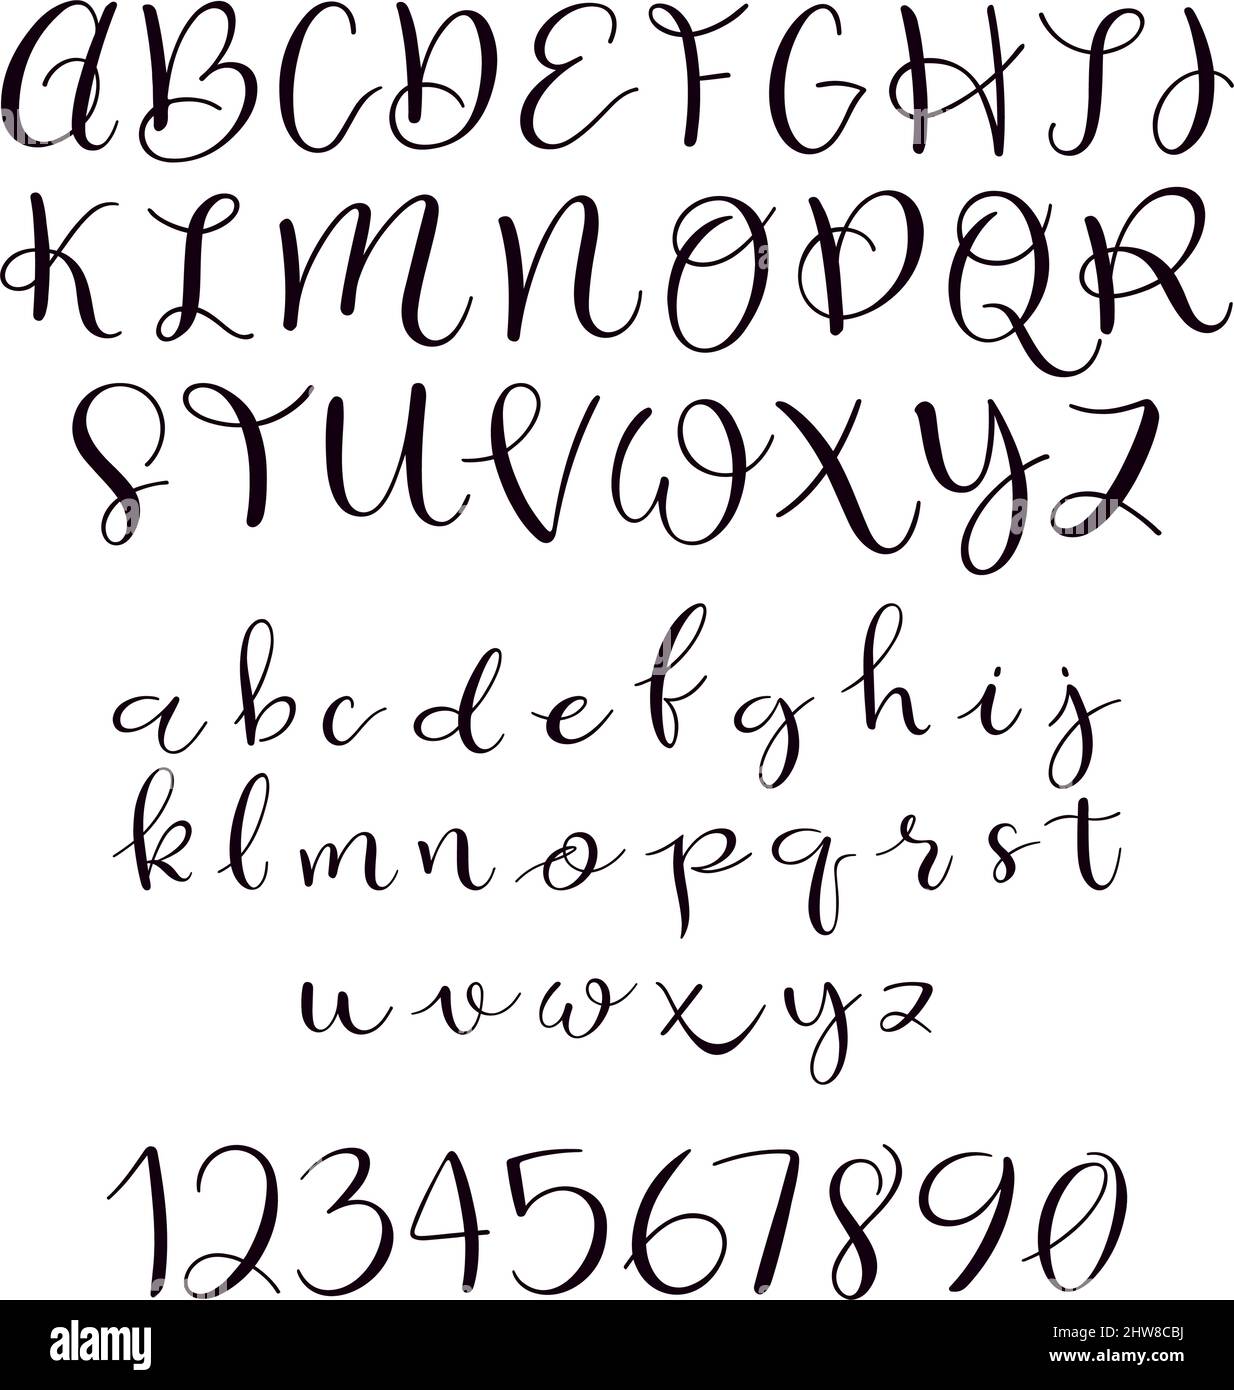 ABCDEFGHIJ
KLMNOPQR
STUVWXYZ
abcdefghij
klmnopqrst
uvwxyz
1234567890
alamy
Image ID: 2HW8CBJ
www.alamy.com